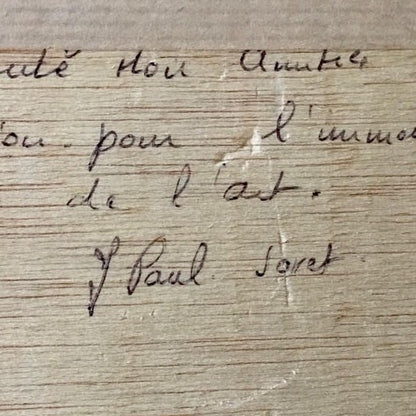 mon amitié
pour l'immo
de l'art.
J Paul. Soret